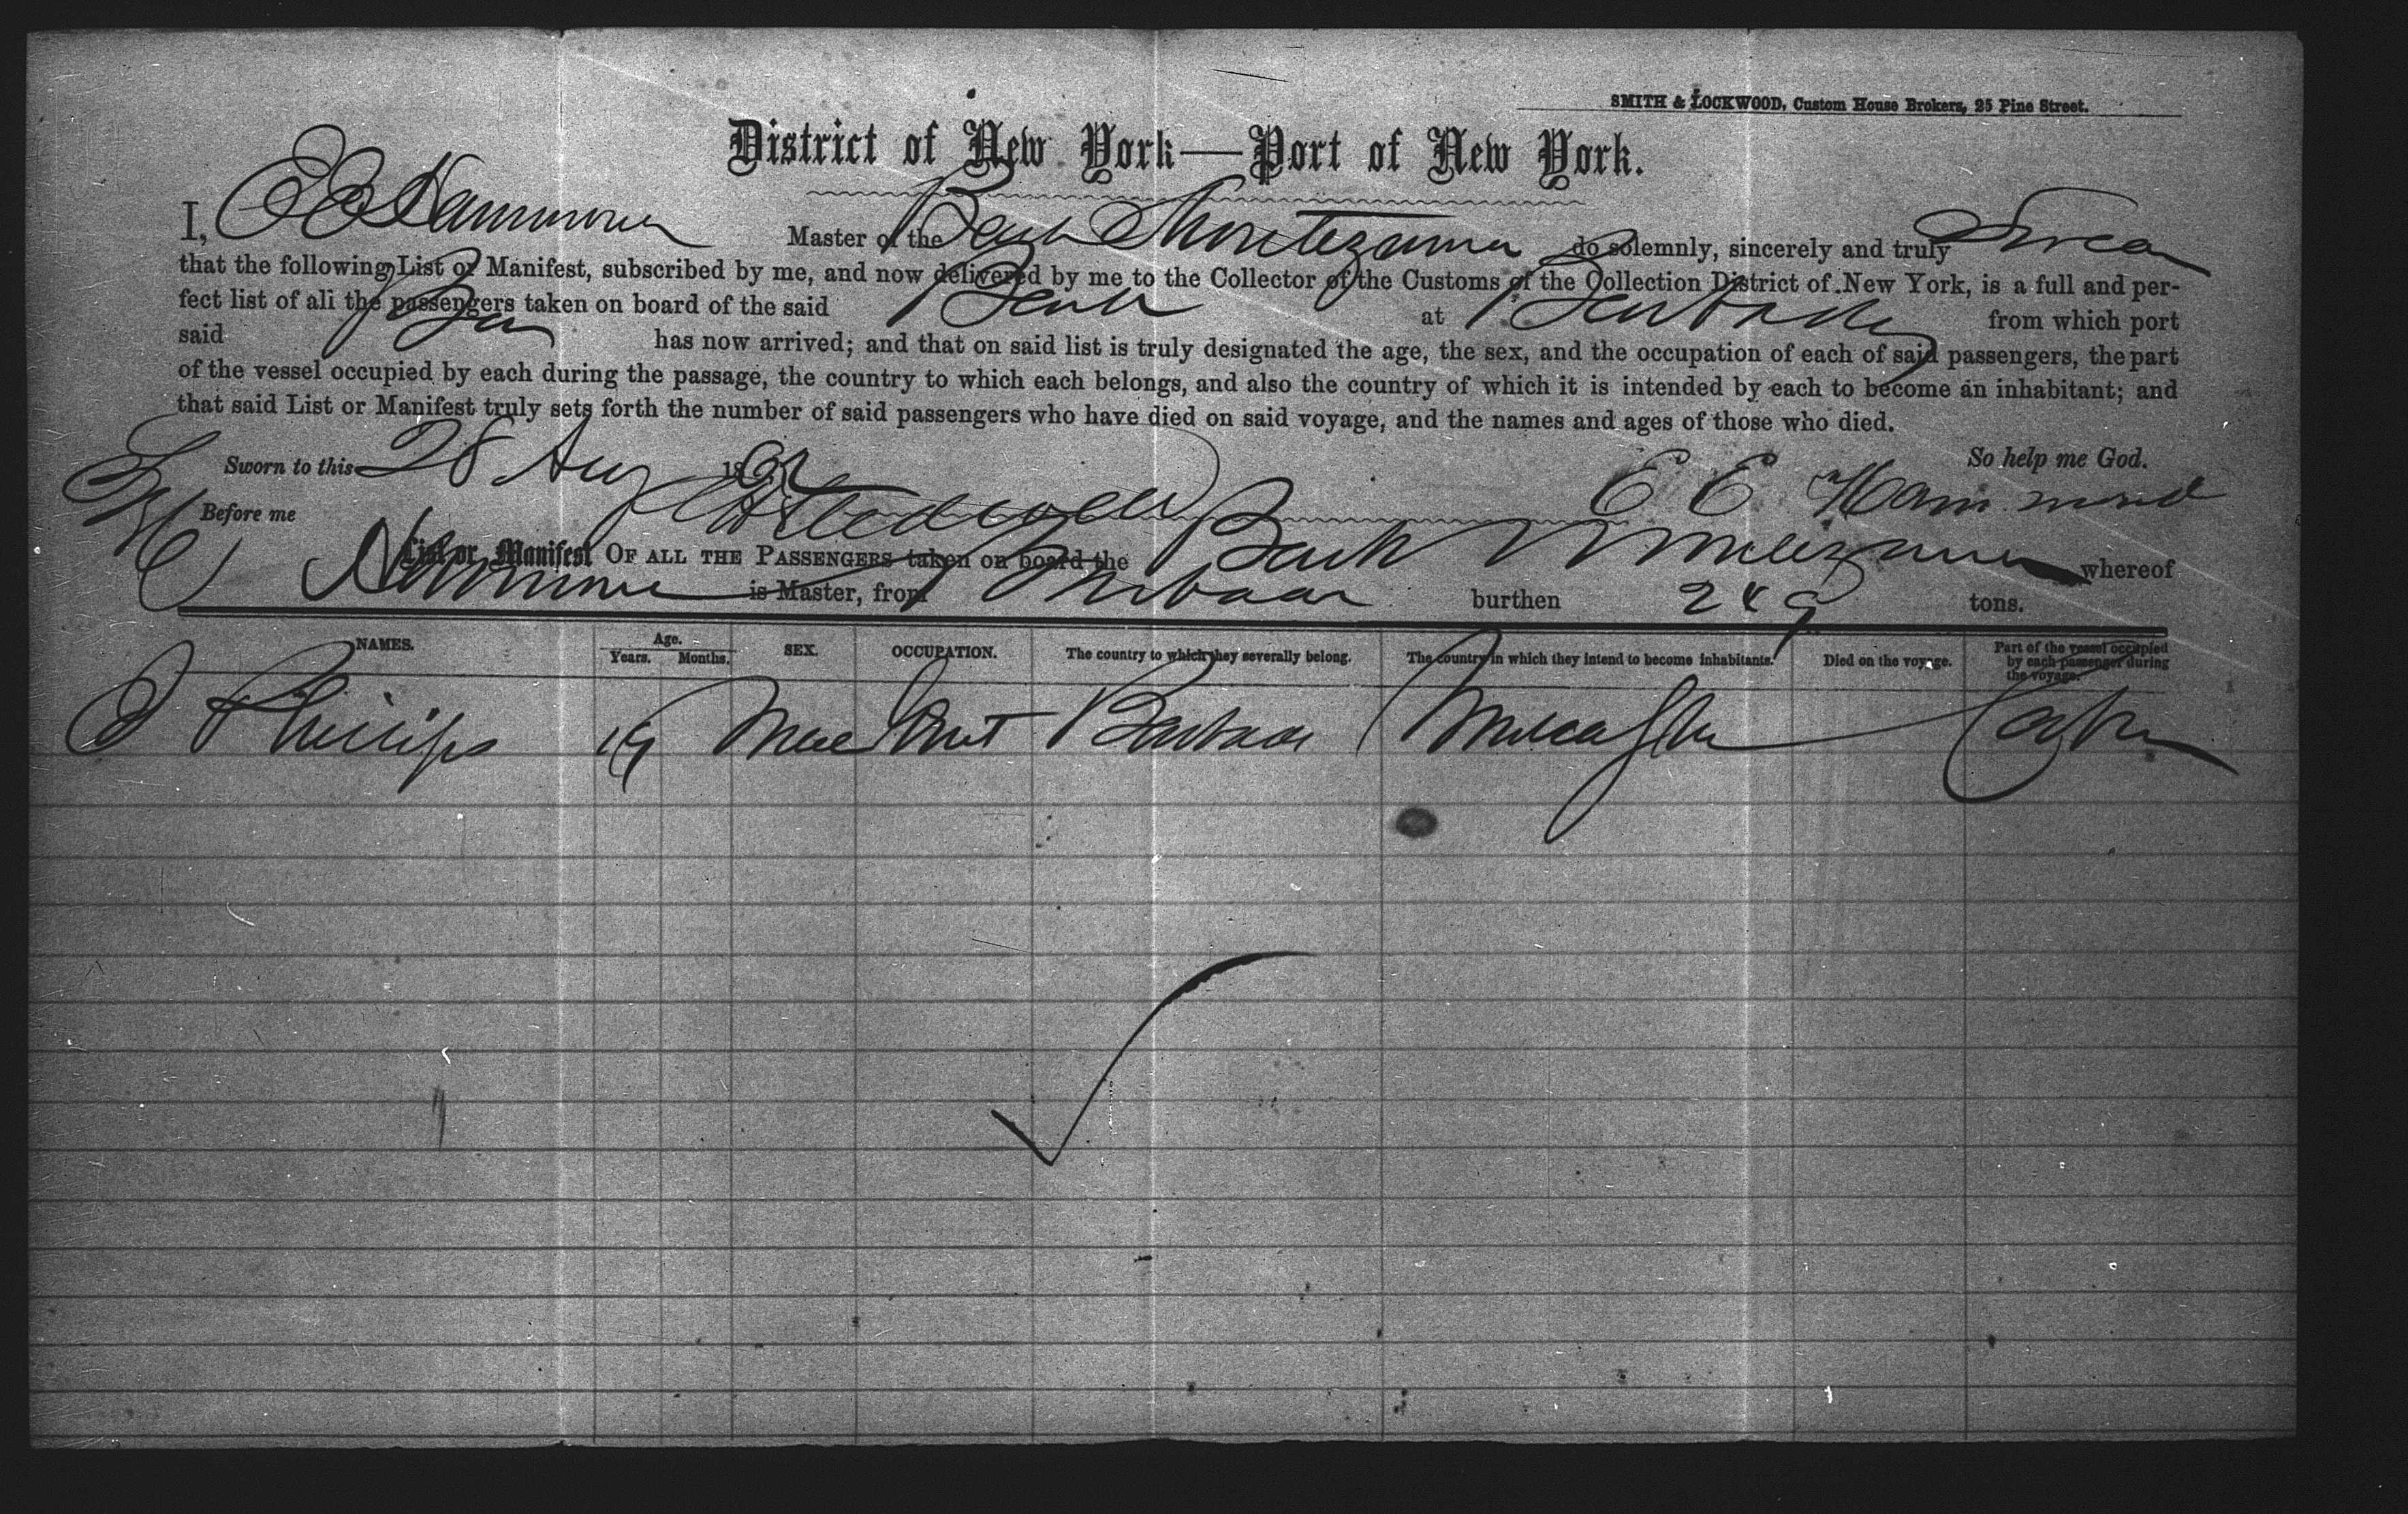 SMITH & LOCKWOOD, Custom House Brokers, 25 Pine Street.
District of New York—Port of New York.
I, E E Hammond Master of the Bark Montezuma do solemnly, sincerely and truly Swear
that the following List or Manifest, subscribed by me, and now delivered by me to the Collector of the Customs of the Collection District of New York, is a full and per-
fect list of all the passengers taken on board of the said Bark at Barbados from which port
said Bark has now arrived; and that on said list is truly designated the age, the sex, and the occupation of each of said passengers, the part
of the vessel occupied by each during the passage, the country to which each belongs, and also the country of which it is intended by each to become an inhabitant; and
that said List or Manifest truly sets forth the number of said passengers who have died on said voyage, and the names and ages of those who died.
Sworn to this 28 Aug 18 So help me God.
Before me E E Hammond
List or Manifest OF ALL THE PASSENGERS taken on board the Bark Montezuma whereof
Hammond is Master, from burthen 249 tons.
NAMES. Age. Years. Months. SEX. OCCUPATION. The country to which they severally belong. The country in which they intend to become inhabitants. Died on the voyage. Part of the vessel occupied by each passenger during the voyage.
Phillips 19 Male Barbados Cabin